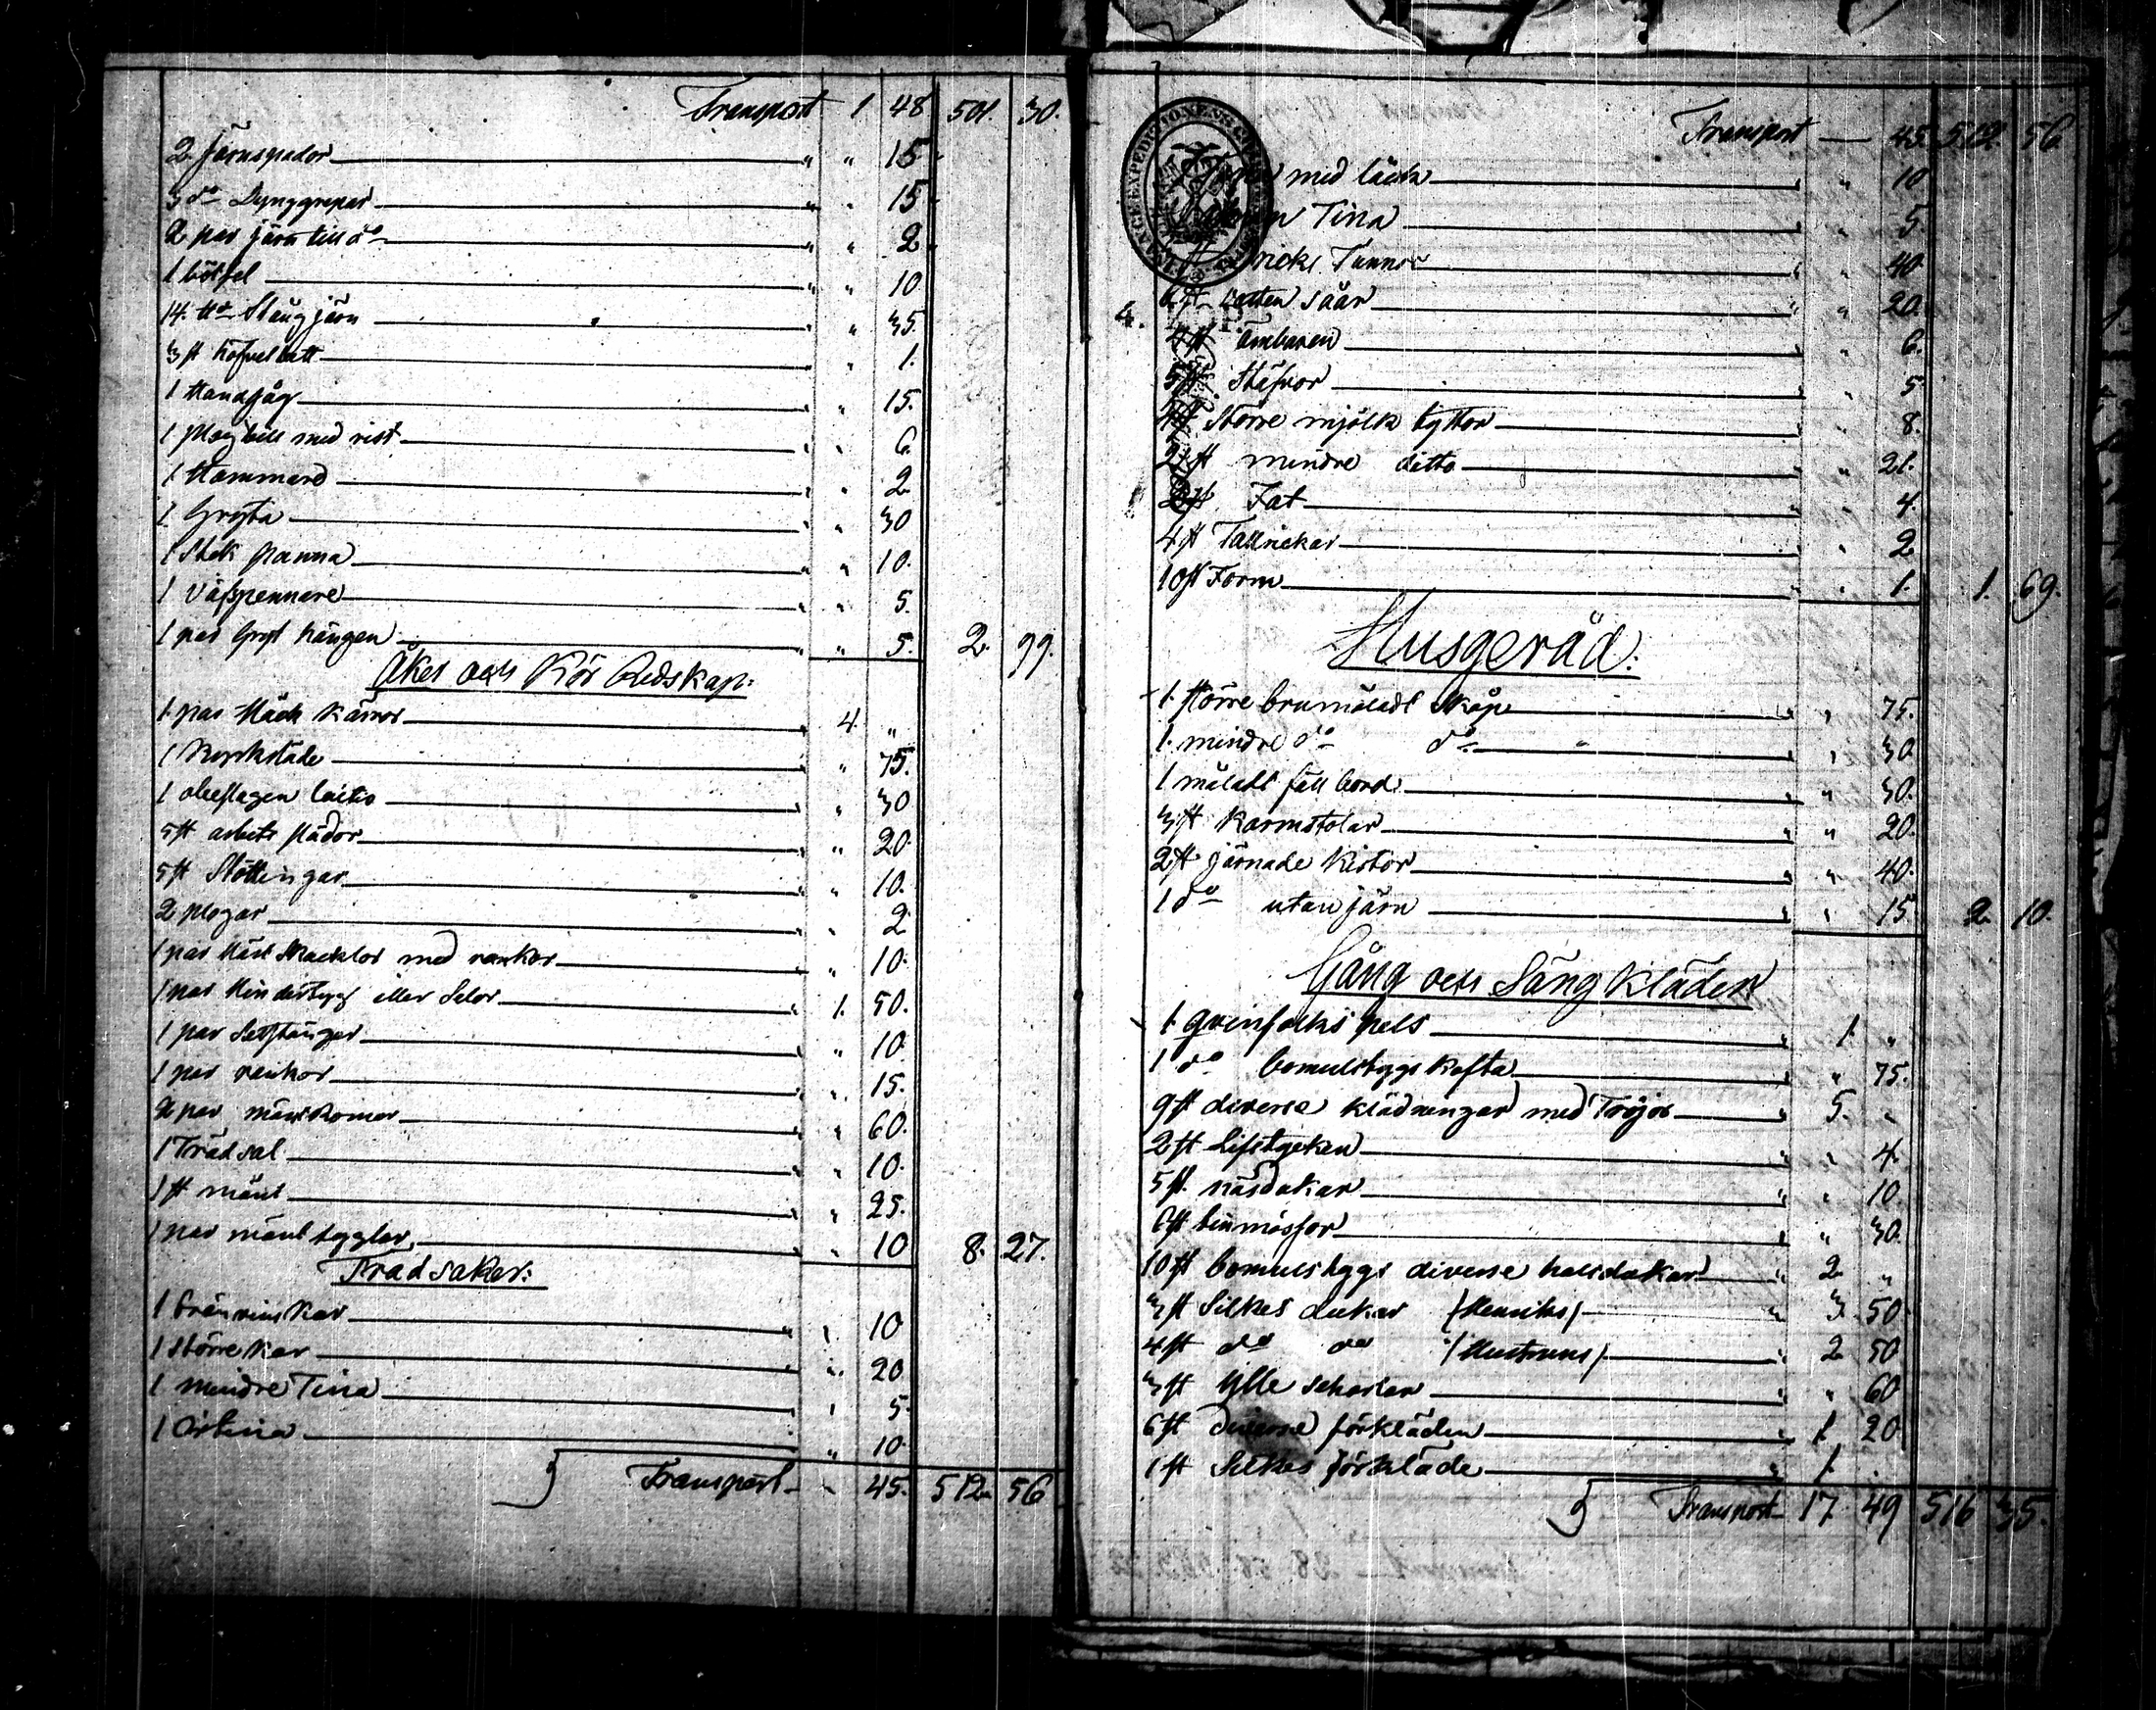 Transport 1 48 501. 30.
2 Järnspador " " 15
3 do Dynggrepar " " 15
2 par järn till do " " 2
1 " " 10
14 Stångjärn " 35.
3 st " 1.
1 Handsåg " " 15.
1 plogbill med rist " " 6
1 Hammare " " 2
1 Gryta " 30
1 Stek panna " " 10.
1 Väfspennare " " 5
1 par Gryt kängen " " 5. 2. 99.
Åker och Kör Redskap:
1 par kärror 4. "
1 " 75.
1 obeslagen " 30
5 st arbets slädor " 20
5 st Stöttingar " " 10.
2 plogar " 2
1 par Skacklor med rankor " 10.
1 par eller Selor 1. 50.
1 par " 10
1 par rankor " 15.
2 par " 60.
1 Trädsal " 10.
1 st " 25.
1 par tyglar " " 10 8. 27.
Träd saker:
1 brännvins kar " " 10
1 större kar " 20
1 mindre Tina " 5
1 " 10
Transport - 45. 512 56
Transport — 45. 512. 56.
med läck " " 10
Tina " 5.
Tunnor " " 40
6 st vatten såar " " 20.
4.
4 st Embaren " 6.
5 st Stäfvor " 5
4 st Större mjölk byttor " " 8.
21 st mindre ditto " 21.
2 st Fat " 4.
4 st Tallrickar " 2
10 st Form " 1. 1. 69.
Husgeråd:
1 större brunmåladt Skåp " " 75.
1 mindre do do " 30
1 måladt fäll bord " 30.
3 st Karmstolar " " 20
2 st järnade Kistor " " 40.
1 do utan järn " " 15 2 10.
Gång och Säng Kläder
1 qvinfolks pels " 1. "
1 do bomulstygs Kofta " 75.
9 st diverse klädningar med Tröjor " 5. "
2 st Lifstycken " " 4.
5 st. näsdukar " " 10
6 st linmössor " " 30.
10 st bomulstygs diverse halsdukar " 2 "
3 st Silkes dukar /Henriks/ " 3 50
4 st do do /Hustruns/ " 2 50
3 st Ylle schalar " " 60
6 st diverse förkläden " 1 20
1 st Silkes förkläde " 1.
Transport 17 49 516 35.